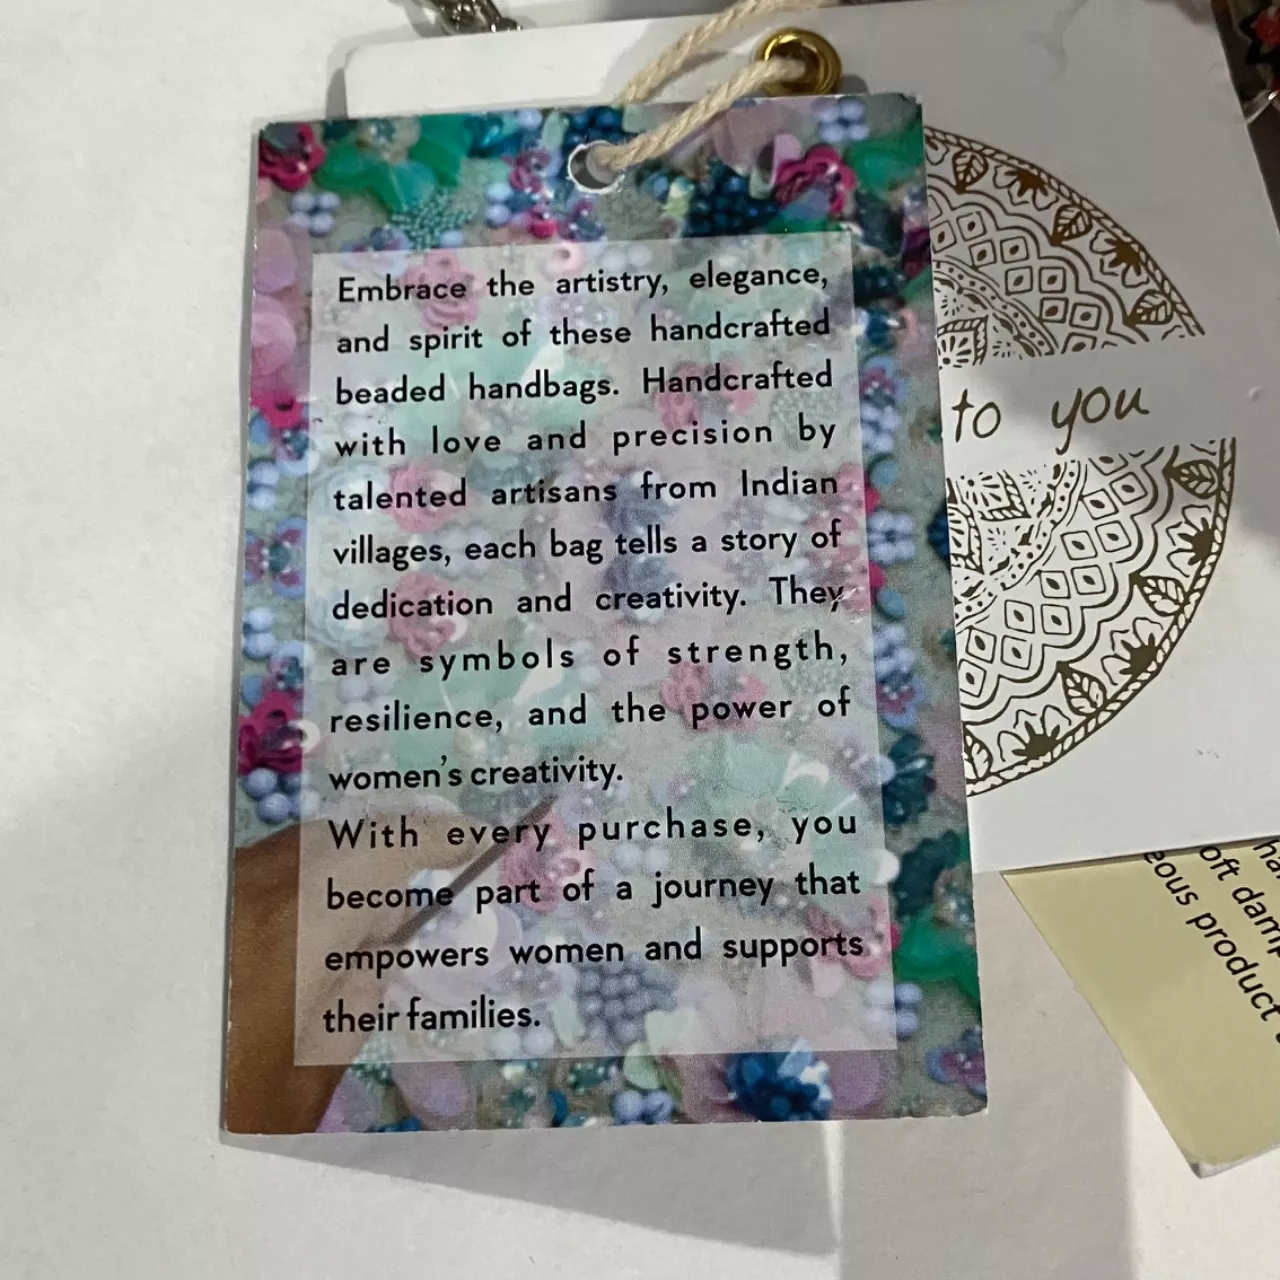 Embrace the artistry, elegance,
and spirit of these handcrafted
beaded handbags. Handcrafted
with love and precision by
talented artisans from Indian
villages, each bag tells a story of
dedication and creativity. They
are symbols of strength,
resilience, and the power of
women's creativity.
With every purchase, you
become part of a journey that
empowers women and supports
their families.
to you
oft damp
eous product